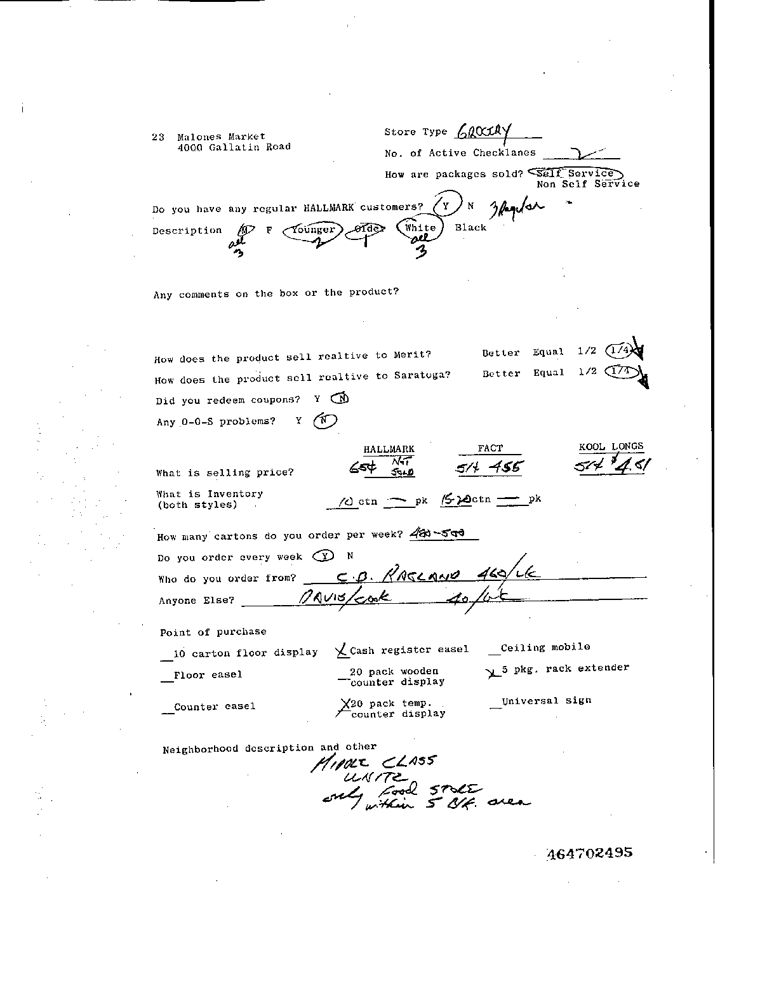 23 Malones Market
4000 Gallatin Road
Store Type GROCERY
No. of Active Checklanes 2
How are packages sold? Self Service
Non Self Service
Do you have any regular HALLMARK customers? Y N 3 Regular
Description M F Younger Older White Black
all 2 1 all
3 3
Any comments on the box or the product?
How does the product sell realtive to Merit? Better Equal 1/2 1/4
How does the product sell realtive to Saratoga? Better Equal 1/2 1/4
Did you redeem coupons? Y N
Any O-O-S problems? Y N
HALLMARK FACT KOOL LONGS
What is selling price? 65¢ NOT SOLD 51¢ 455 51¢ $4.51
What is Inventory
(both styles) 10 ctn — pk 15-20 ctn — pk
How many cartons do you order per week? 480-500
Do you order every week Y N
Who do you order from? C.B. RAGLAND 460/WK
Anyone Else? DAVIS/cook 40/WK
Point of purchase
10 carton floor display X Cash register easel Ceiling mobile
Floor easel 20 pack wooden counter display X 5 pkg. rack extender
Counter easel X 20 pack temp. counter display Universal sign
Neighborhood description and other
MIDDLE CLASS
WHITE
only Food STORE
within 5 Blk. area
464702495